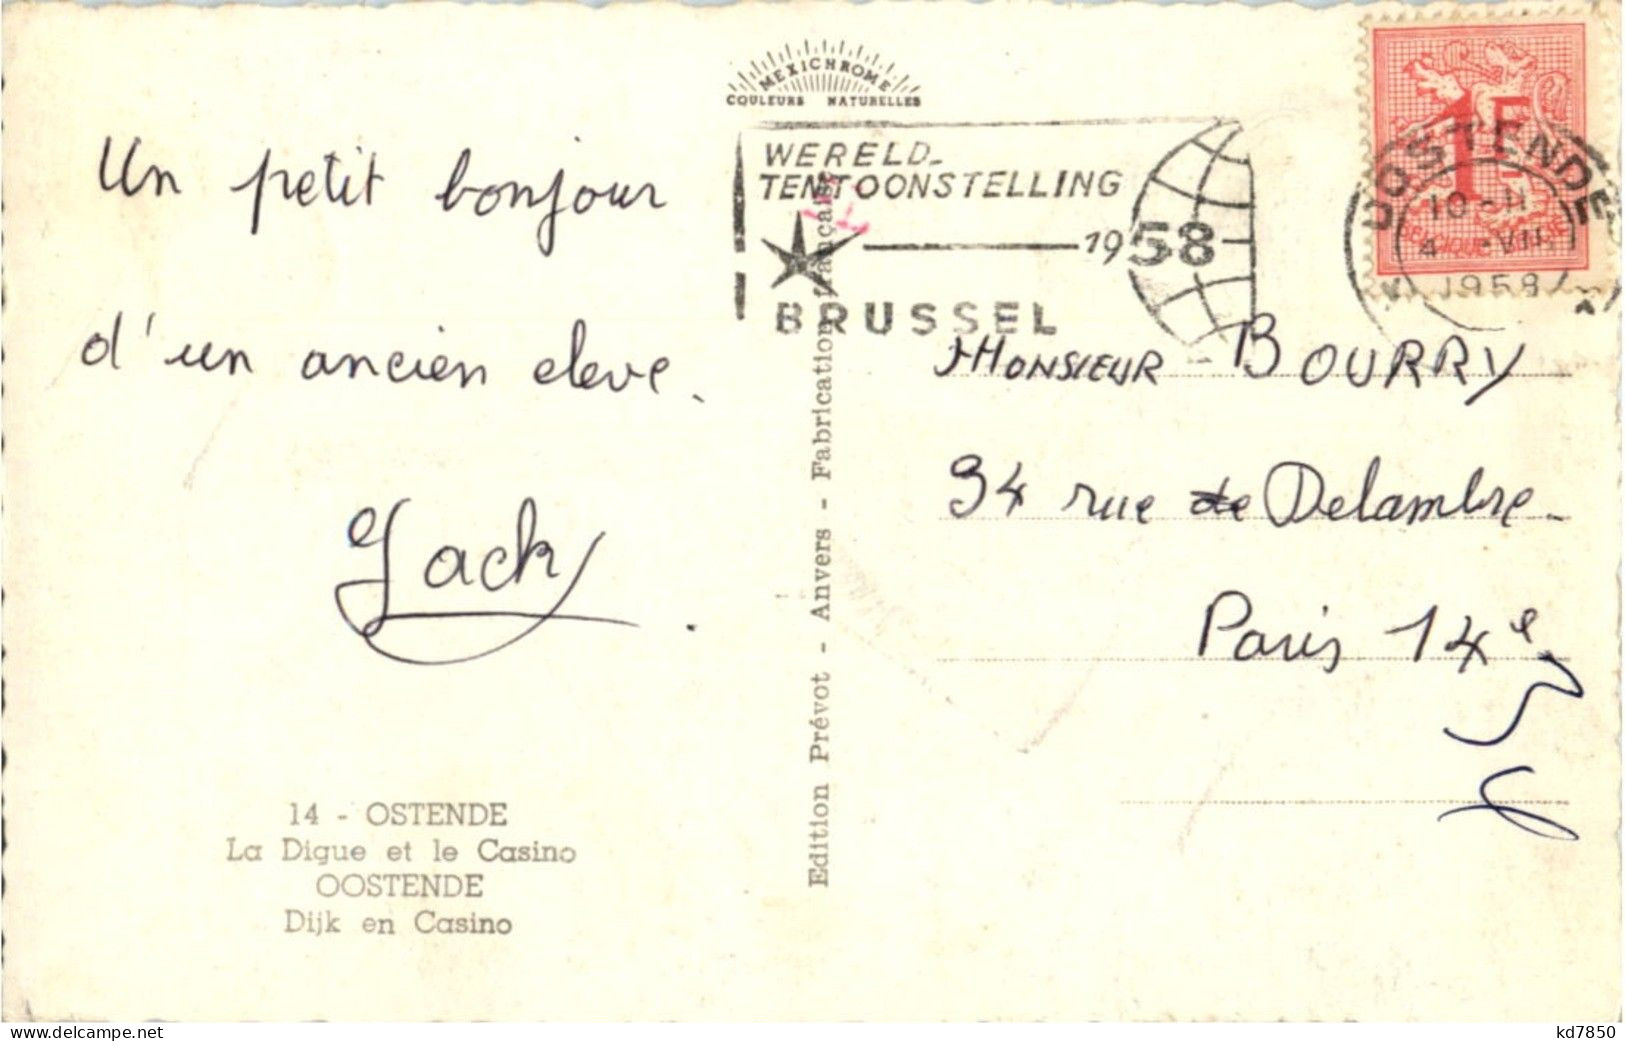 MEXICHROME
COULEURS NATURELLES
WERELD-
TENTOONSTELLING
1958
BRUSSEL
1F
BELGIQUE
OOSTENDE
10-11
4 -VII
1958
Un petit bonjour
d'un ancien eleve.
Jack
Monsieur BOURRY
34 rue de Delambre
Paris 14e
14 - OSTENDE
La Digue et le Casino
OOSTENDE
Dijk en Casino
Edition Prévot - Anvers - Fabrication française
delcampe.net
kd7850